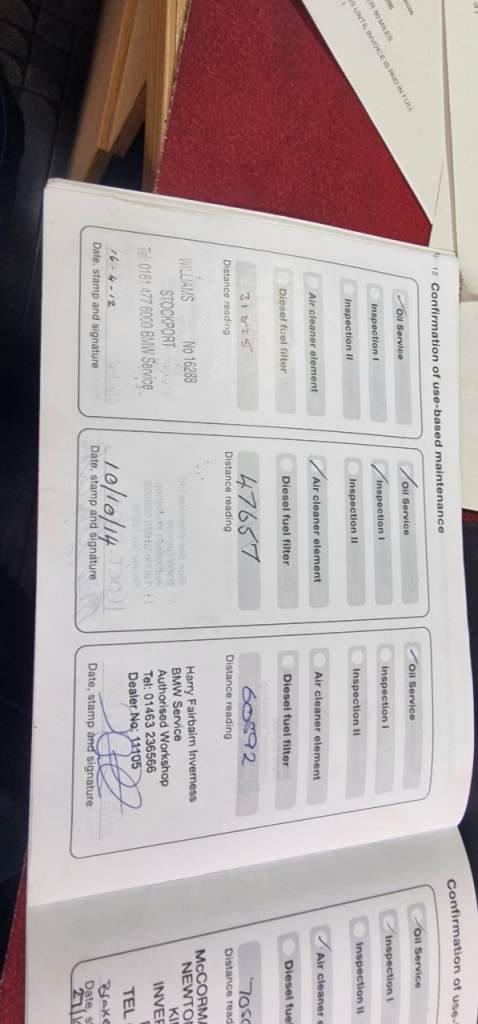 12 Confirmation of use-based maintenance
Oil Service
Inspection I
Inspection II
Air cleaner element
Diesel fuel filter
Distance reading
WILLIAMS No 16288
STOCKPORT
Tel: 0161 477 6000 BMW Service
16-4-12
Date, stamp and signature
Oil Service
Inspection I
Inspection II
Air cleaner element
Diesel fuel filter
47657
Distance reading
10/10/14
Date, stamp and signature
Oil Service
Inspection I
Inspection II
Air cleaner element
Diesel fuel filter
60892
Distance reading
Harry Fairbairn Inverness
BMW Service
Authorised Workshop
Tel: 01463 236566
Dealer No: 11105
Date, stamp and signature
Confirmation of use-
Oil Service
Inspection I
Inspection II
Air cleaner
Diesel fue
Distance read
McCORMA
NEWTO
KI
INVER
TEL
Date, s
50 MILES
S UNTIL INVOICE IS PAID IN FULL